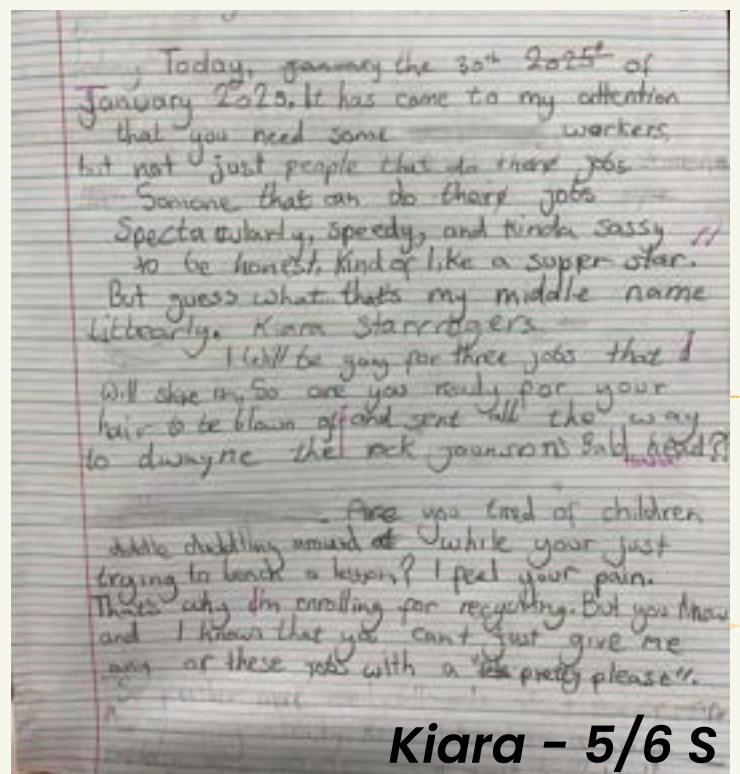 Today, january the 30th 2025 of
January 2025. It has come to my attention
that you need some workers,
but not just people that do there jobs
Somone that can do there jobs
Spectacularly, speedy, and kinda sassy
to be honest. Kind of like a super star.
But guess what thats my middle name
Littearly. Kiara Starrrogers
I will be going for three jobs that I
will shine in, So are you ready for your
hair to be blown off and sent all the way
to dwayne the rock joonson's bald head?!
Are you tired of children
diddle daddling around at while your just
trying to teach a lesson? I feel your pain.
That's why I'm enrolling for recycling. But you know
and I know that you can't just give me
any of these jobs with a "pretty please".
Kiara - 5/6 S